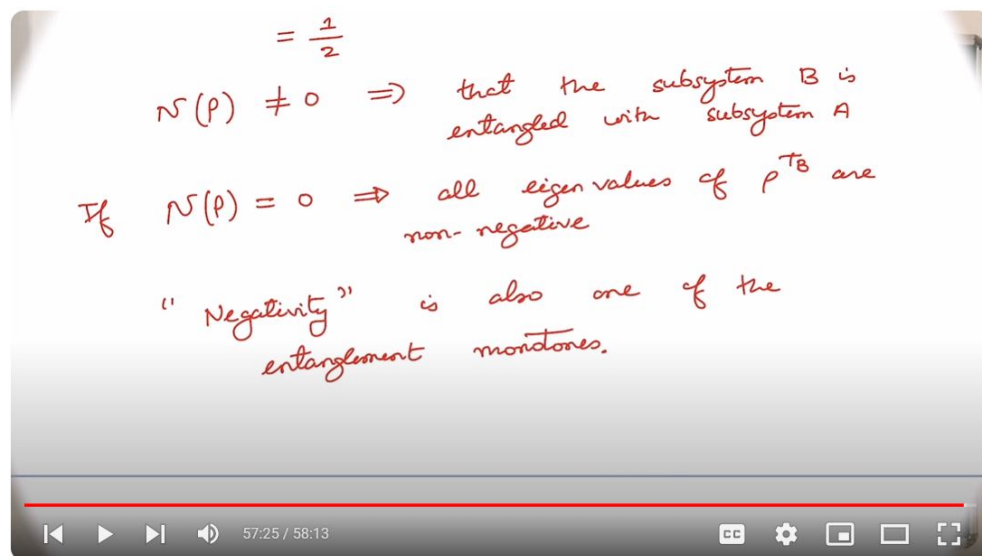 = 1/2
N(ρ) ≠ 0 ⇒ that the subsystem B is
entangled with subsystem A
If N(ρ) = 0 ⇒ all eigen values of ρ^TB are
non-negative
"Negativity" is also one of the
entanglement monotones.
57:25 / 58:13
CC